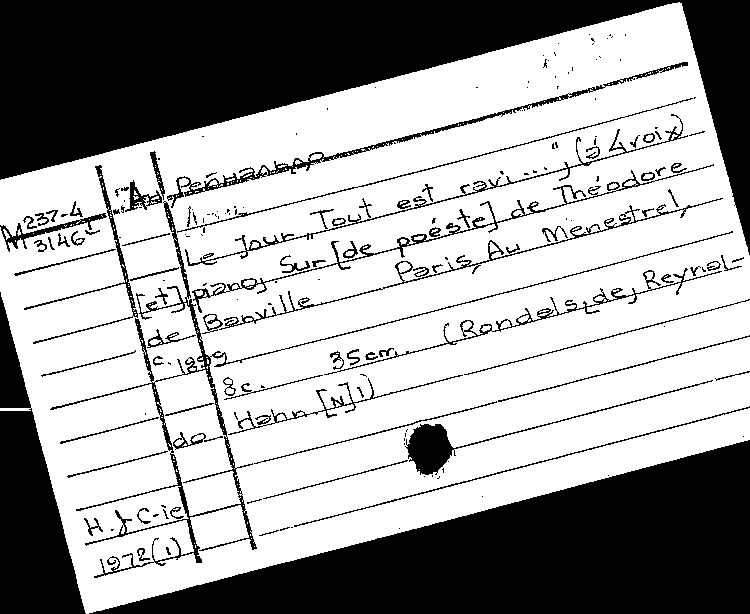 М 237-4
3146¹
Ан, Рейнальдо
Le Jour „Tout est ravi...", (à 4 voix)
[et] piano, Sur [de poéste] de Théodore
de Banville Paris, Au Ménestrel,
c. 1899.
8c. 35cm. (Rondels, de, Reynal-
do Hahn. [N] 1)
H. & C-ie
1972(1)